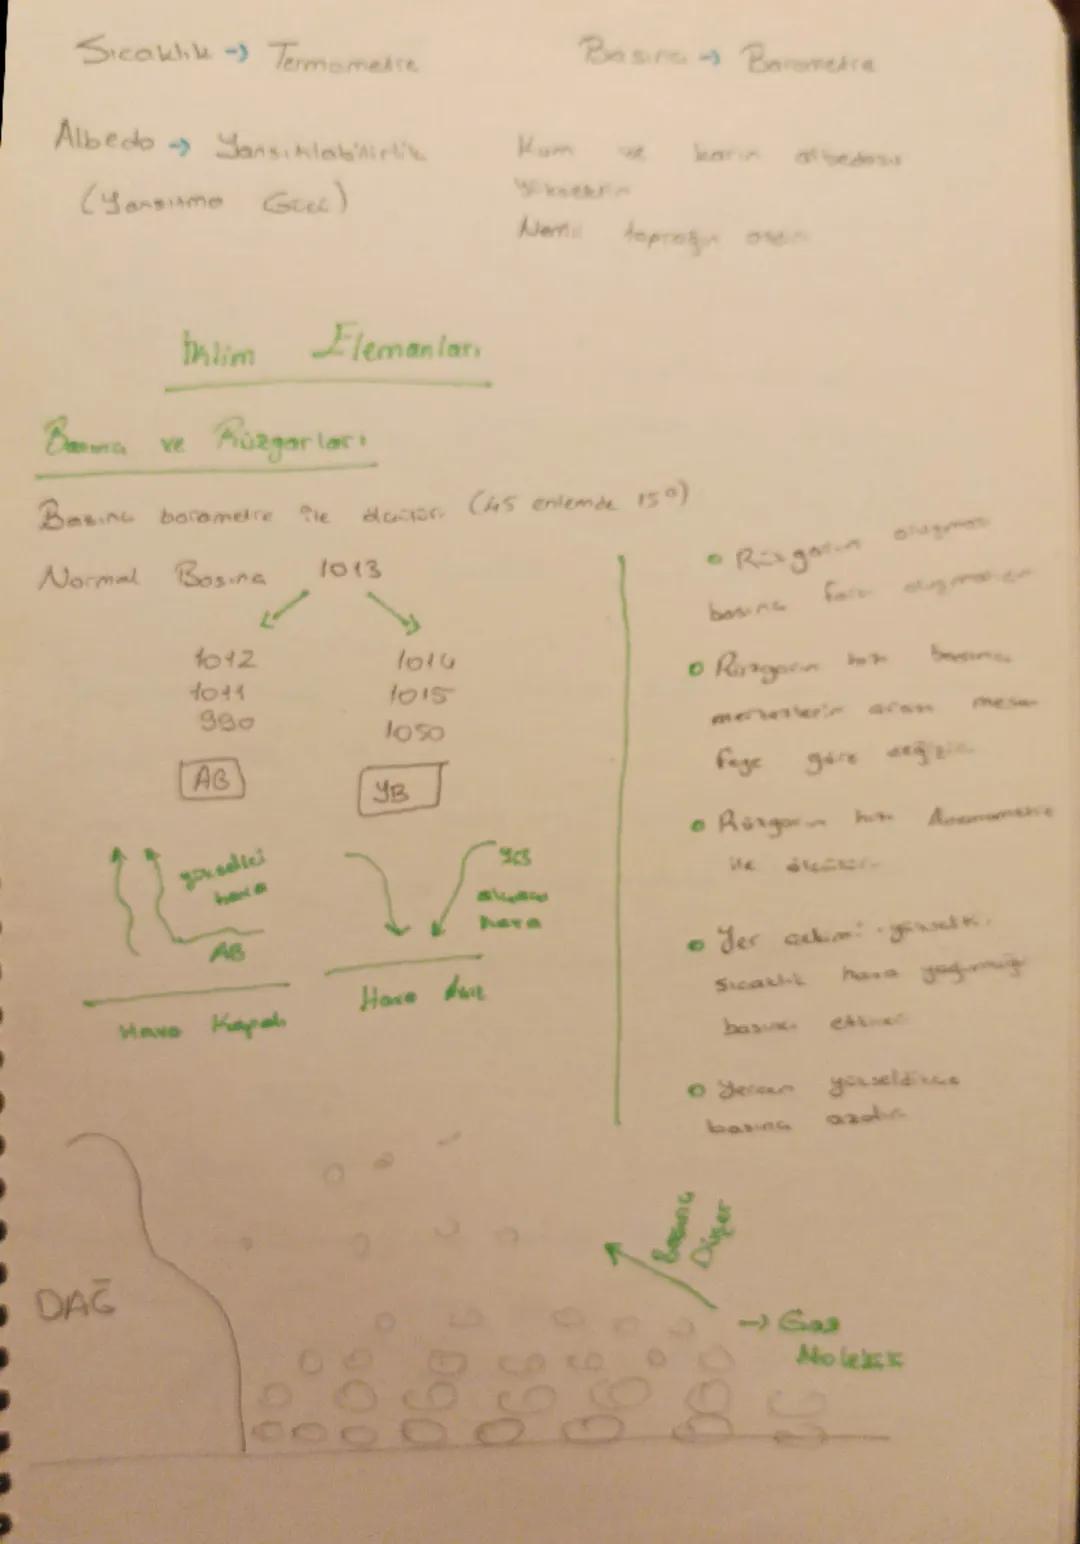 Sıcaklık → Termometre
Basınç → Barometre
Albedo → Yansıtılabilirlik
(Yansıtma Gücü)
Kum ve karın albedosu
yüksektir
Nemli toprağın
İklim Elemanları
Basınç ve Rüzgarları
Basınç barometre ile ölçülür. (45 enlemde 15°)
Normal Basınç 1013
1012
1011
990
AB
1014
1015
1050
YB
yükselici
hava
AB
Hava Kapalı
alçalıcı
hava
Hava Açık
• Rüzgarın oluşması
basınç farkı
• Rüzgarın hızı basınç
merkezlerin arası mesa
feye göre değişir.
• Rüzgarın hızı Anemometre
ile ölçülür.
• Yer çekimi, yükselti,
sıcaklık hava yoğunluğu
basıncı etkiler
• Yerden yükseldikçe
basınç azalır.
DAĞ
Basınç
Düşer
→ Gaz
Molekül